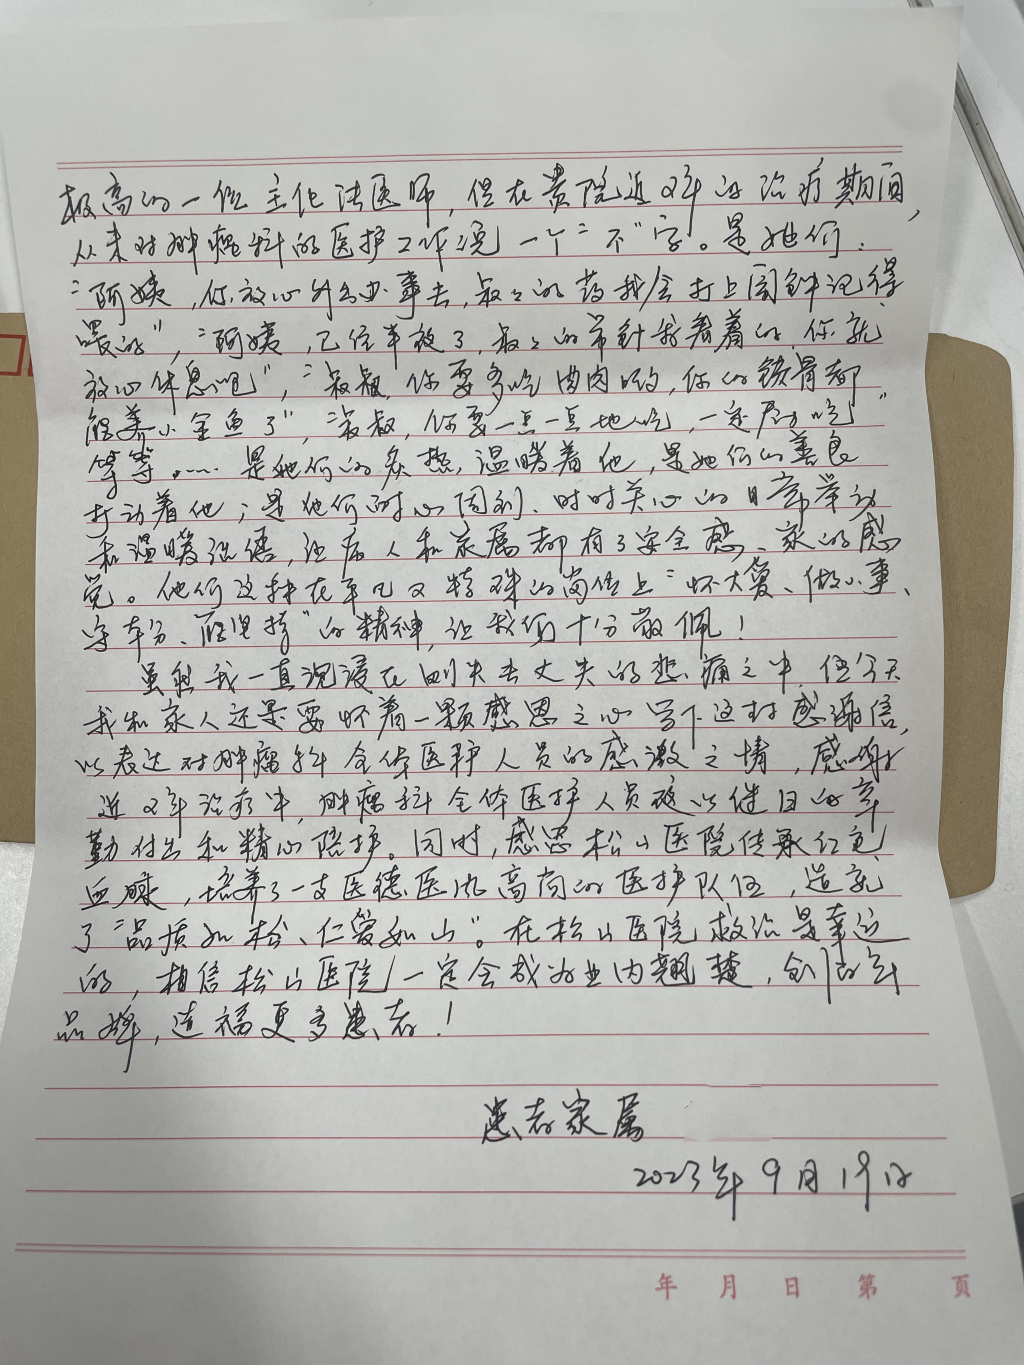 极高的一位主任法医师，但在贵院近2年的治疗期间，
从未对肿瘤科的医护工作说一个“不”字。是她们：
“阿姨，你放心外出办事去，叔叔的药我会打上闹钟记得
喂的”，“阿姨，已经半夜了，叔叔的吊针我看着的，你就
放心休息吧”，“叔叔，你要多吃肉肉哟，你的锁骨都
能养小金鱼了”，“叔叔，你要一点一点地吃，一定努力吃”
等等。…… 是她们的炙热，温暖着他，是她们的善良
打动着他；是他们耐心周到、时时关心的日常举动
和温暖话语，让病人和家属都有了安全感、家的感
觉。他们这种在平凡又特殊的岗位上“怀大爱、做小事、
守本分、能坚持”的精神，让我们十分敬佩！
虽然我一直沉浸在刚失去丈夫的悲痛之中，但今天
我和家人还是要怀着一颗感恩之心写下这封感谢信，
以表达对肿瘤科全体医护人员的感激之情，感谢
近2年治疗中，肿瘤科全体医护人员夜以继日的辛
勤付出和精心陪护。同时，感恩松山医院传承红色
血脉，培养了一支医德医风高尚的医护队伍，造就
了“品质如松、仁爱如山”。在松山医院救治是幸运
的，相信松山医院一定会成为业内翘楚，创百年
品牌，造福更多患者！
患者家属
2023年9月19日
年 月 日 第 页